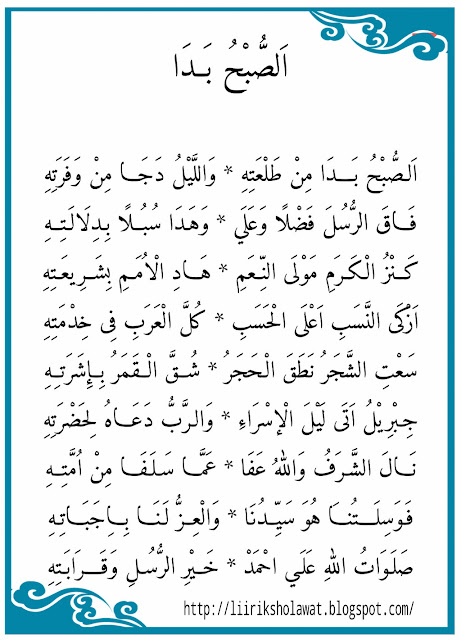 اَلصُّبْحُ بَـدَا
اَلصُّبْحُ بَـــدَا مِنْ طَلْعَتِهِ * وَاللَّيْلُ دَجَـا مِنْ وَفَرَتِهِ
فَـاقَ الرُّسُلَ فَضْلًا وَعَلَي * وَهَدَا سُبُـلًا بِدِلَالَتِـــهِ
كَـنْزُ الْكَـرَمِ مَوْلَى النِّـعَمِ * هَـادِ الْاُمَـمِ بِشَـرِيعَتِهِ
اَزْكَى النَّسَبِ اَعْلَى الْحَسَبِ * كُلَّ الْعَرَبِ فِى خِدْمَتِهِ
سَعْتِ الشَّجَرُ نَطَقَ الْحَجَرُ * شُـقَّ الْـقَمَرُ بِـإِشَرَتِـهِ
جِبْرِيْلُ اَتَى لَيْلَ الْإسْرَاءِ * وَالـرَّبُّ دَعَـاهُ لِحَضْرَتِهِ
نَـالَ الشَّـرَفُ وَاللهُ عَفَا * عَمَّـا سَـلَفَـا مِنْ اُمَّتِـهِ
فَـوَسِلَـــتُنَـا هُوَ سَيِّـدُنَا * وَالْعِـزُّ لَنَـا بِـاِجَبَـاتِـهِ
صَلَـوَاتُ اللهِ عَلَـي احْمَدْ * خَـيْرِ الرُّسُـلِ وَقَـــرَابَـتِهِ
http://liiriksholawat.blogspot.com/